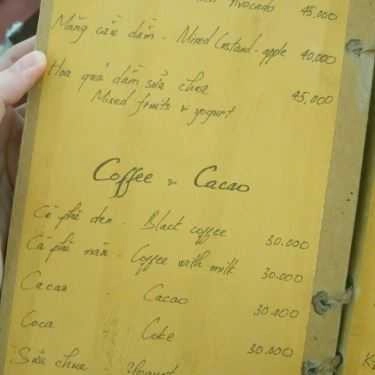 Avocado 45,000
Mãng cầu dầm - Mixed Custard-apple 40,000
Hoa quả dầm sữa chua
Mixed fruits & yogurt 45,000
Coffee & Cacao
Cà phê đen - Black coffee 30.000
Cà phê nâu - Coffee with milk 30.000
Cacao Cacao 30.000
Coca Coke 30.000
Sữa chua - Yogurt